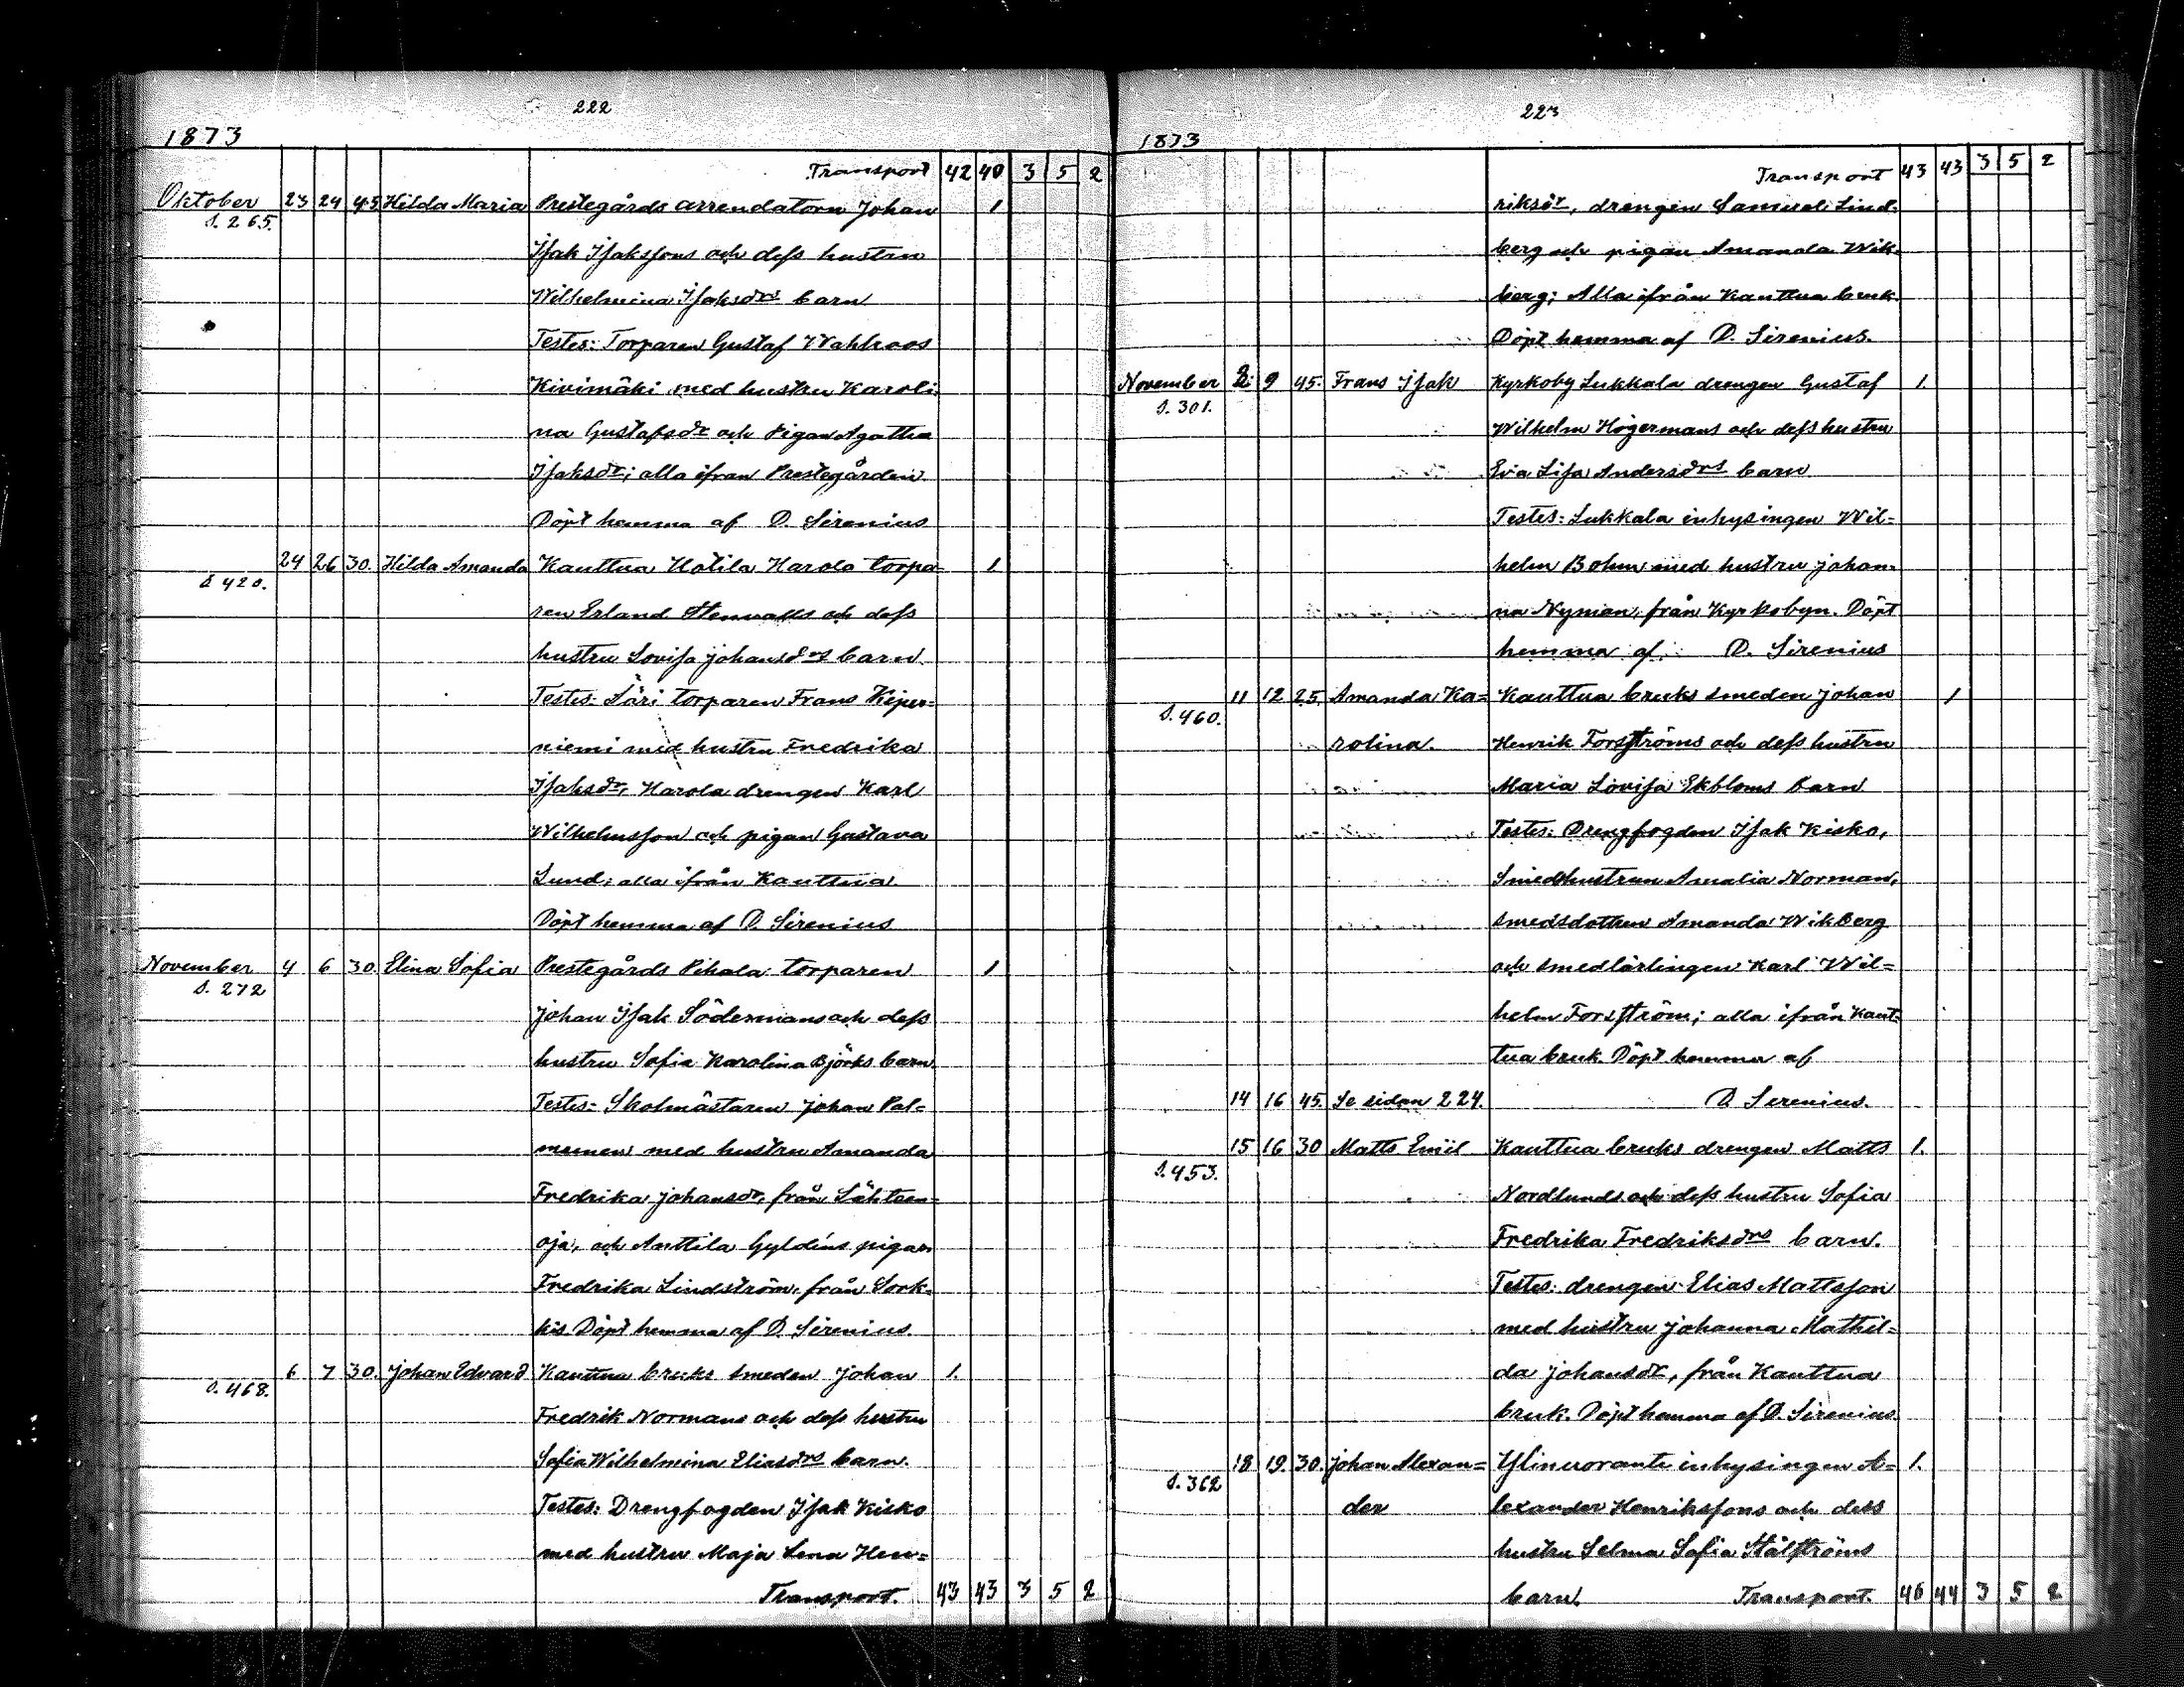 222
1873
Transport 42 40 3 5 2
Oktober 23 24 45 Hilda Maria Prestegårds arrendatorn Johan 1
S. 265.
Isak Isakssons och dess hustru
Wilhelmina Isaksdrs barn
Testes: Torparen Gustaf Wahlroos
Kivimäki med hustru Karoli-
na Gustafsdr och Pigan Agatha
Isaksdr; alla ifrån Prestegården.
Döpt hemma af D. Sirenius
24 26 30. Hilda Amanda Kauttua Harola torpa- 1
S 420.
ren Erland Stenvalls och dess
hustru Lovisa Johansdrs barn.
Testes: torparen Frans Kiper-
niemi med hustru Fredrika
Isaksdr, Harola drengen Karl
Wilhelmsson och pigan Gustava
Lund; alla ifrån Kauttua.
Döpt hemma af D. Sirenius
November 4 6 30 Elina Sofia Prestegårds Pihala torparen 1
S. 272
Johan Isak Södermans och dess
hustru Sofia Karolina Björks barn
Testes: Skolmästaren Johan Pal-
munen med hustru Amanda
Fredrika Johansdr, från Lähteen-
oja, och Anttila Gyldéns pigan
Fredrika Lindström, från Sork-
kis. Döpt hemma af D. Sirenius.
6 7 30. Johan Edvard Kauttua bruks smeden Johan 1.
S. 468.
Fredrik Normans och dess hustru
Sofia Wilhelmina Eliasdrs barn.
Testes: Drengfogden Isak Kisko
med hustru Maja Lena Hen-
Transport. 43 43 3 5 2
223
1873
Transport 43 43 3 5 2
riksdr, drengen Samuel Lind-
berg och pigan Amanda Wik-
berg; Alla ifrån Kauttua bruk.
Döpt hemma af D. Sirenius.
November 2 9 45. Frans Isak Kyrkoby Lukkala drengen Gustaf 1.
S. 301.
Wilhelm Högermans och dess hustru
Eva Lisa Andersdrs barn
Testes: Lukkala inhysingen Wil-
helm Bohm med hustru Johan-
na Nyman, från Kyrkobyn. Döpt
hemma af D. Sirenius
11 12 25. Amanda Ka- Kauttua bruks smeden Johan 1
S. 460.
rolina. Henrik Forsströms och dess hustru
Maria Lovisa Ekbloms barn
Testes: Drengfogden Isak Kisko,
Smedhustrun Amalia Norman,
smedsdottren Amanda WikBerg
och smedlärlingen Karl Wil-
helm Forsström; alla ifrån Kaut-
tua bruk. Döpt hemma af
14 16 45. Se sidan 224. D. Sirenius.
15 16 30 Matts Emil Kauttua bruks drengen Matts 1.
S. 453.
Nordlunds och dess hustru Sofia
Fredrika Fredriksdrs barn.
Testes: drengen Elias Mattsson
med hustru Johanna Mathil-
da Johansdr, från Kauttua
bruk. Döpt hemma af D. Sirenius.
18 19. 30. Johan Alexan- inhysingen A- 1.
S. 362
der lexander Henrikssons och dess
hustru Selma Sofia Stålströms
barn. Transport. 46 44 3 5 2